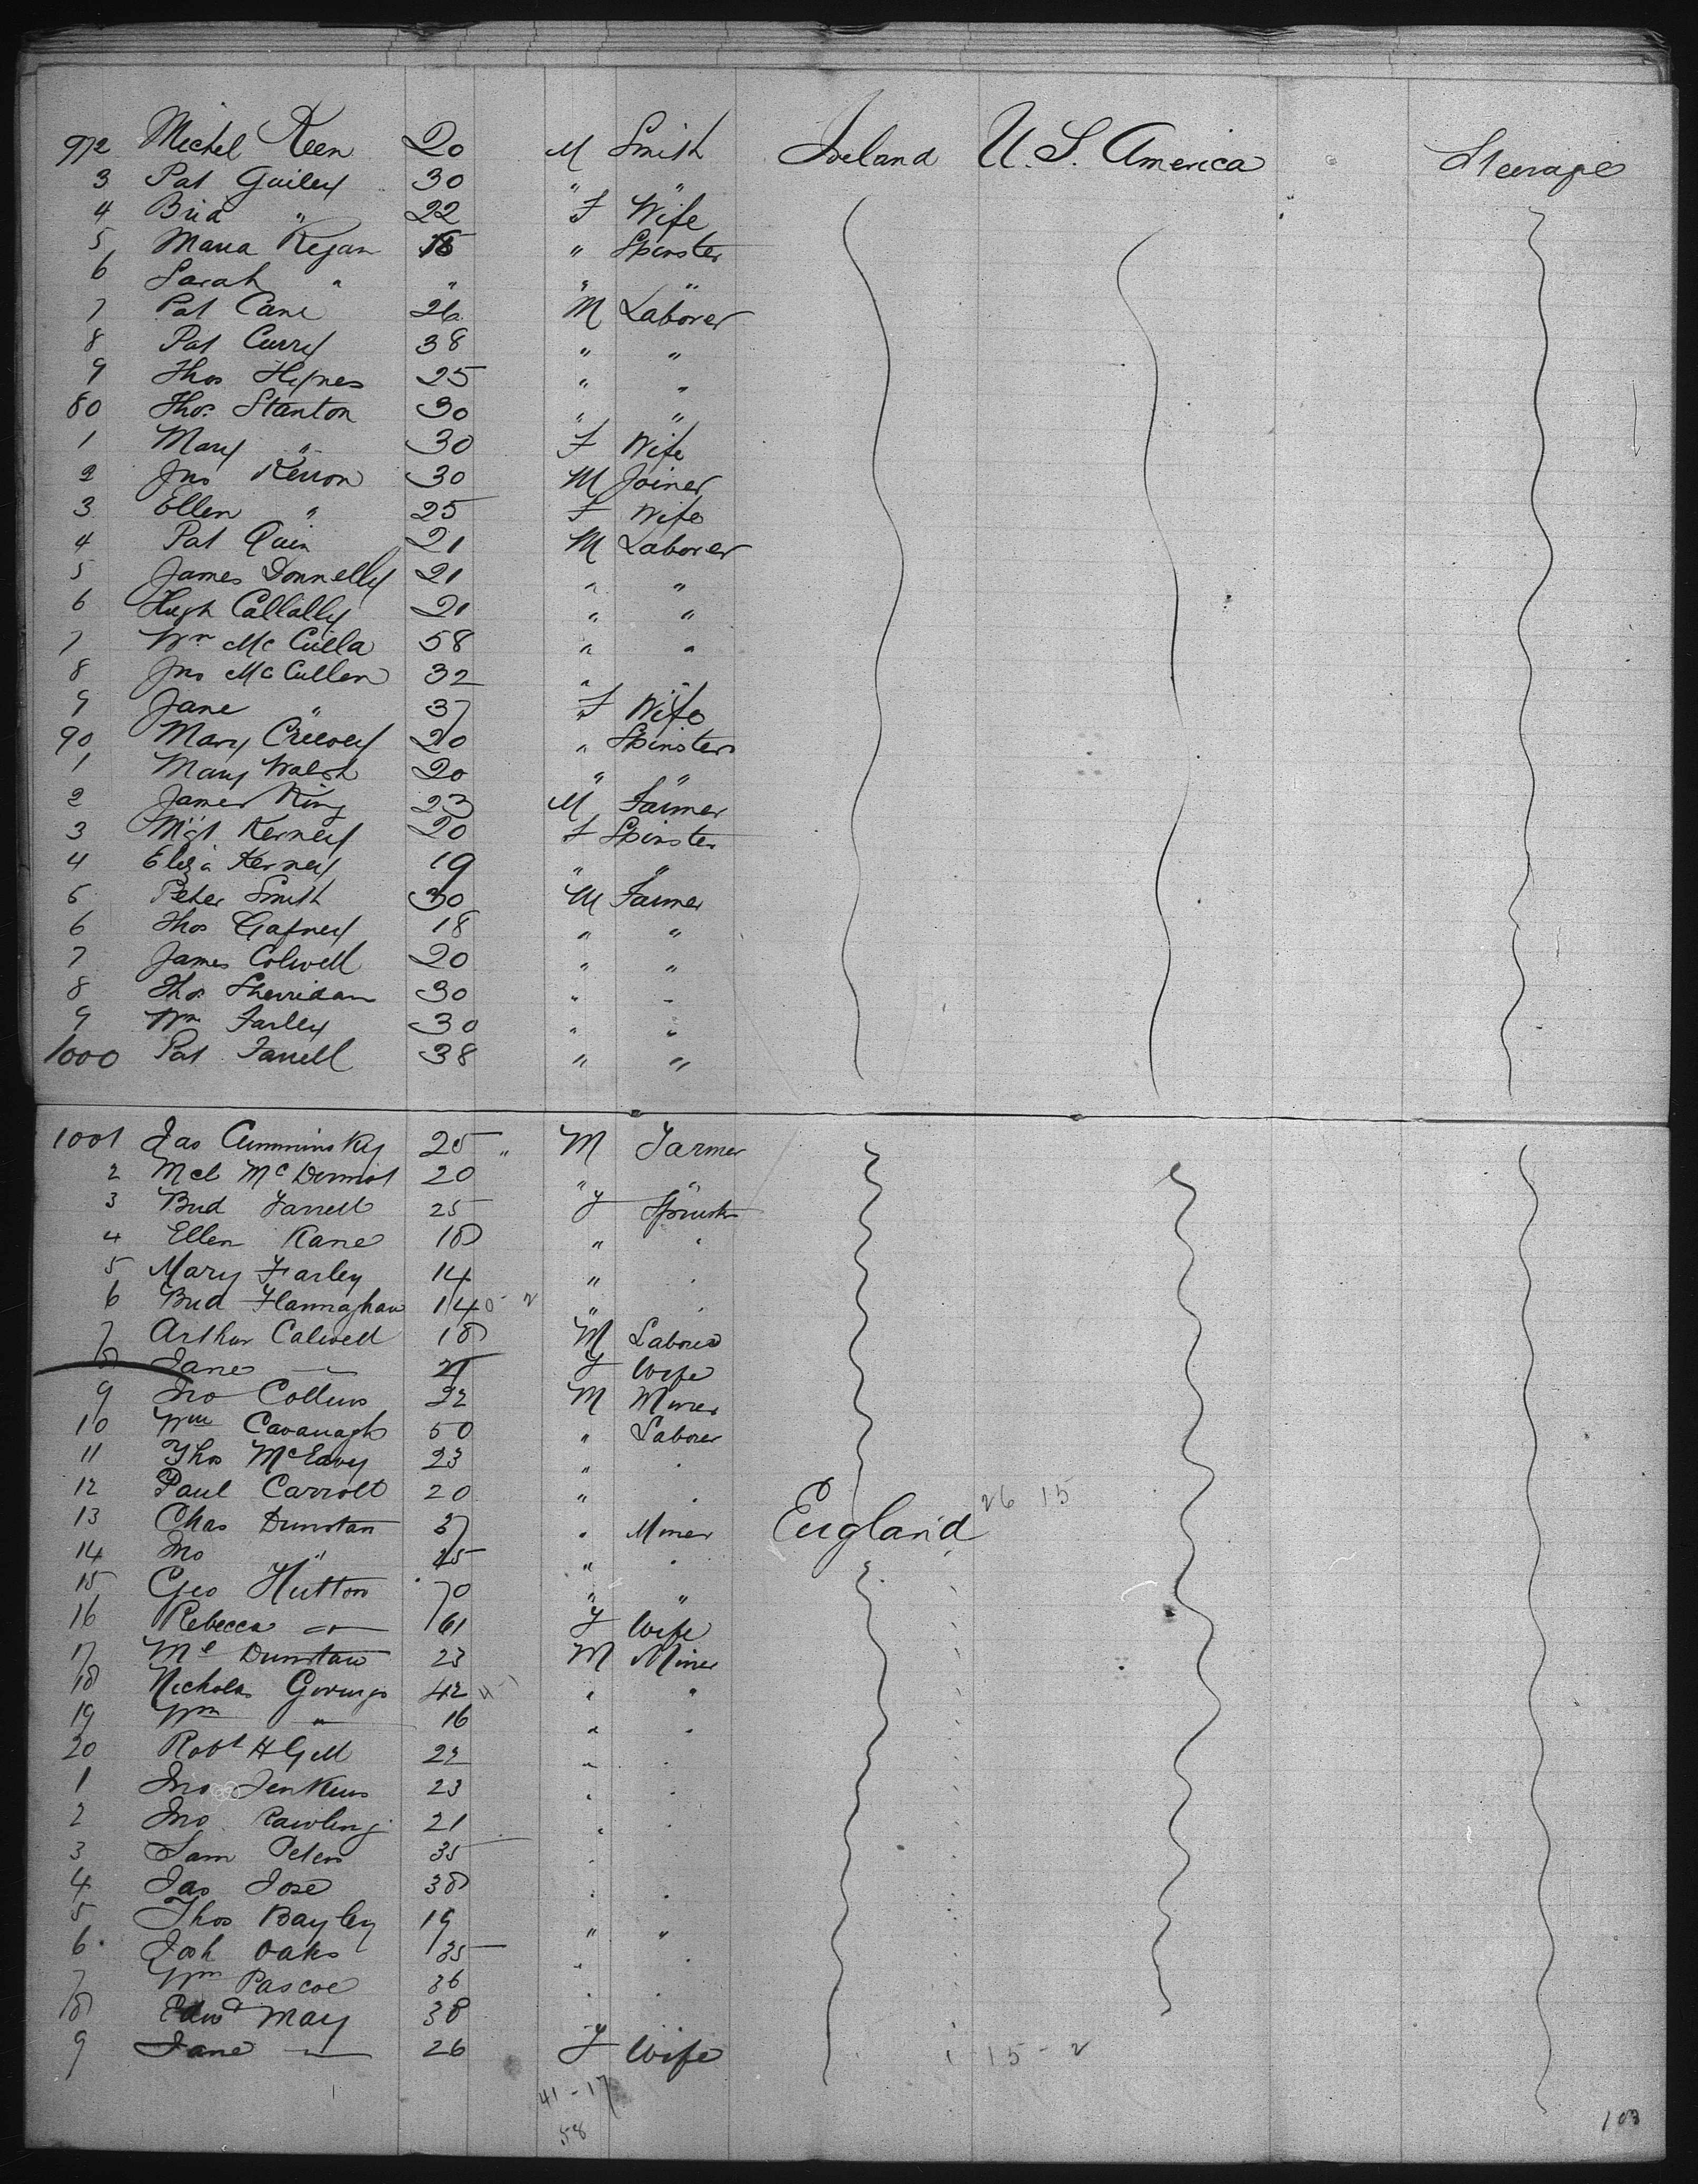 972 Michel Keen 20 M Smith Ireland U.S. America Steerage
3 Pat Guiley 30 " "
4 Brid " 22 F Wife
5 Maria Regan 18 " Spinster
6 Sarah " " " "
7 Pat Cane 26 M Laborer
8 Pat Curry 38 " "
9 Thos Hynes 25 " "
80 Thos. Stanton 30 " "
1 Mary " 30 F Wife
2 Jno Kerron 30 M Joiner
3 Ellen " 25 F Wife
4 Pat Quin 21 M Laborer
5 James Donnelly 21 " "
6 Hugh Callally 21 " "
7 Wm McCulla 58 " "
8 Jno McCullen 32 " "
9 Jane " 37 F Wife
90 Mary Creevey 20 " Spinster
1 Mary Walsh 20 " "
2 James King 23 M Farmer
3 Mgt Kerney 20 F Spinster
4 Eliza Kerney 19 " "
5 Peter Smith 30 M Farmer
6 Thos Gafney 18 " "
7 James Colwell 20 " "
8 Thos Sherridan 30 " "
9 Wm Farley 30 " "
1000 Pat Farrell 38 " "
1001 Jas Cumminsky 25 " M Farmer
2 Mcl McDermot 20 " "
3 Brid Farrell 25 F Spinster
4 Ellen Kane 18 " "
5 Mary Farley 14 " "
6 Brid Flannaghan 14 " "
7 Arthur Calwell 18 M Laborer
8 Jane " 21 F Wife
9 Jno Collins 22 M Miner
10 Wm Cavanagh 50 " Laborer
11 Thos McEavy 23 " "
12 Paul Carrolt 20 " "
26 15
13 Chas Dunstan 37 " Miner England
14 Jno " 45 " "
15 Geo Hutton 70 " "
16 Rebecca " 61 F Wife
17 Ml Dunstan 23 M Miner
18 Nicholas 42 " "
19 Wm " 16 " "
20 Robt H Gill 22 " "
1 Jno Jenkins 23 " "
2 Jno Rawling 21 " "
3 Sam Peters 35 " "
4 Jas Jose 38 " "
5 Thos Bayley 19 " "
6 Josh Oaks 35 " "
7 Wm Pascoe 36 " "
8 Edwd May 38 "
9 Jane " 26 F Wife 1-15-2
41-17
58
103